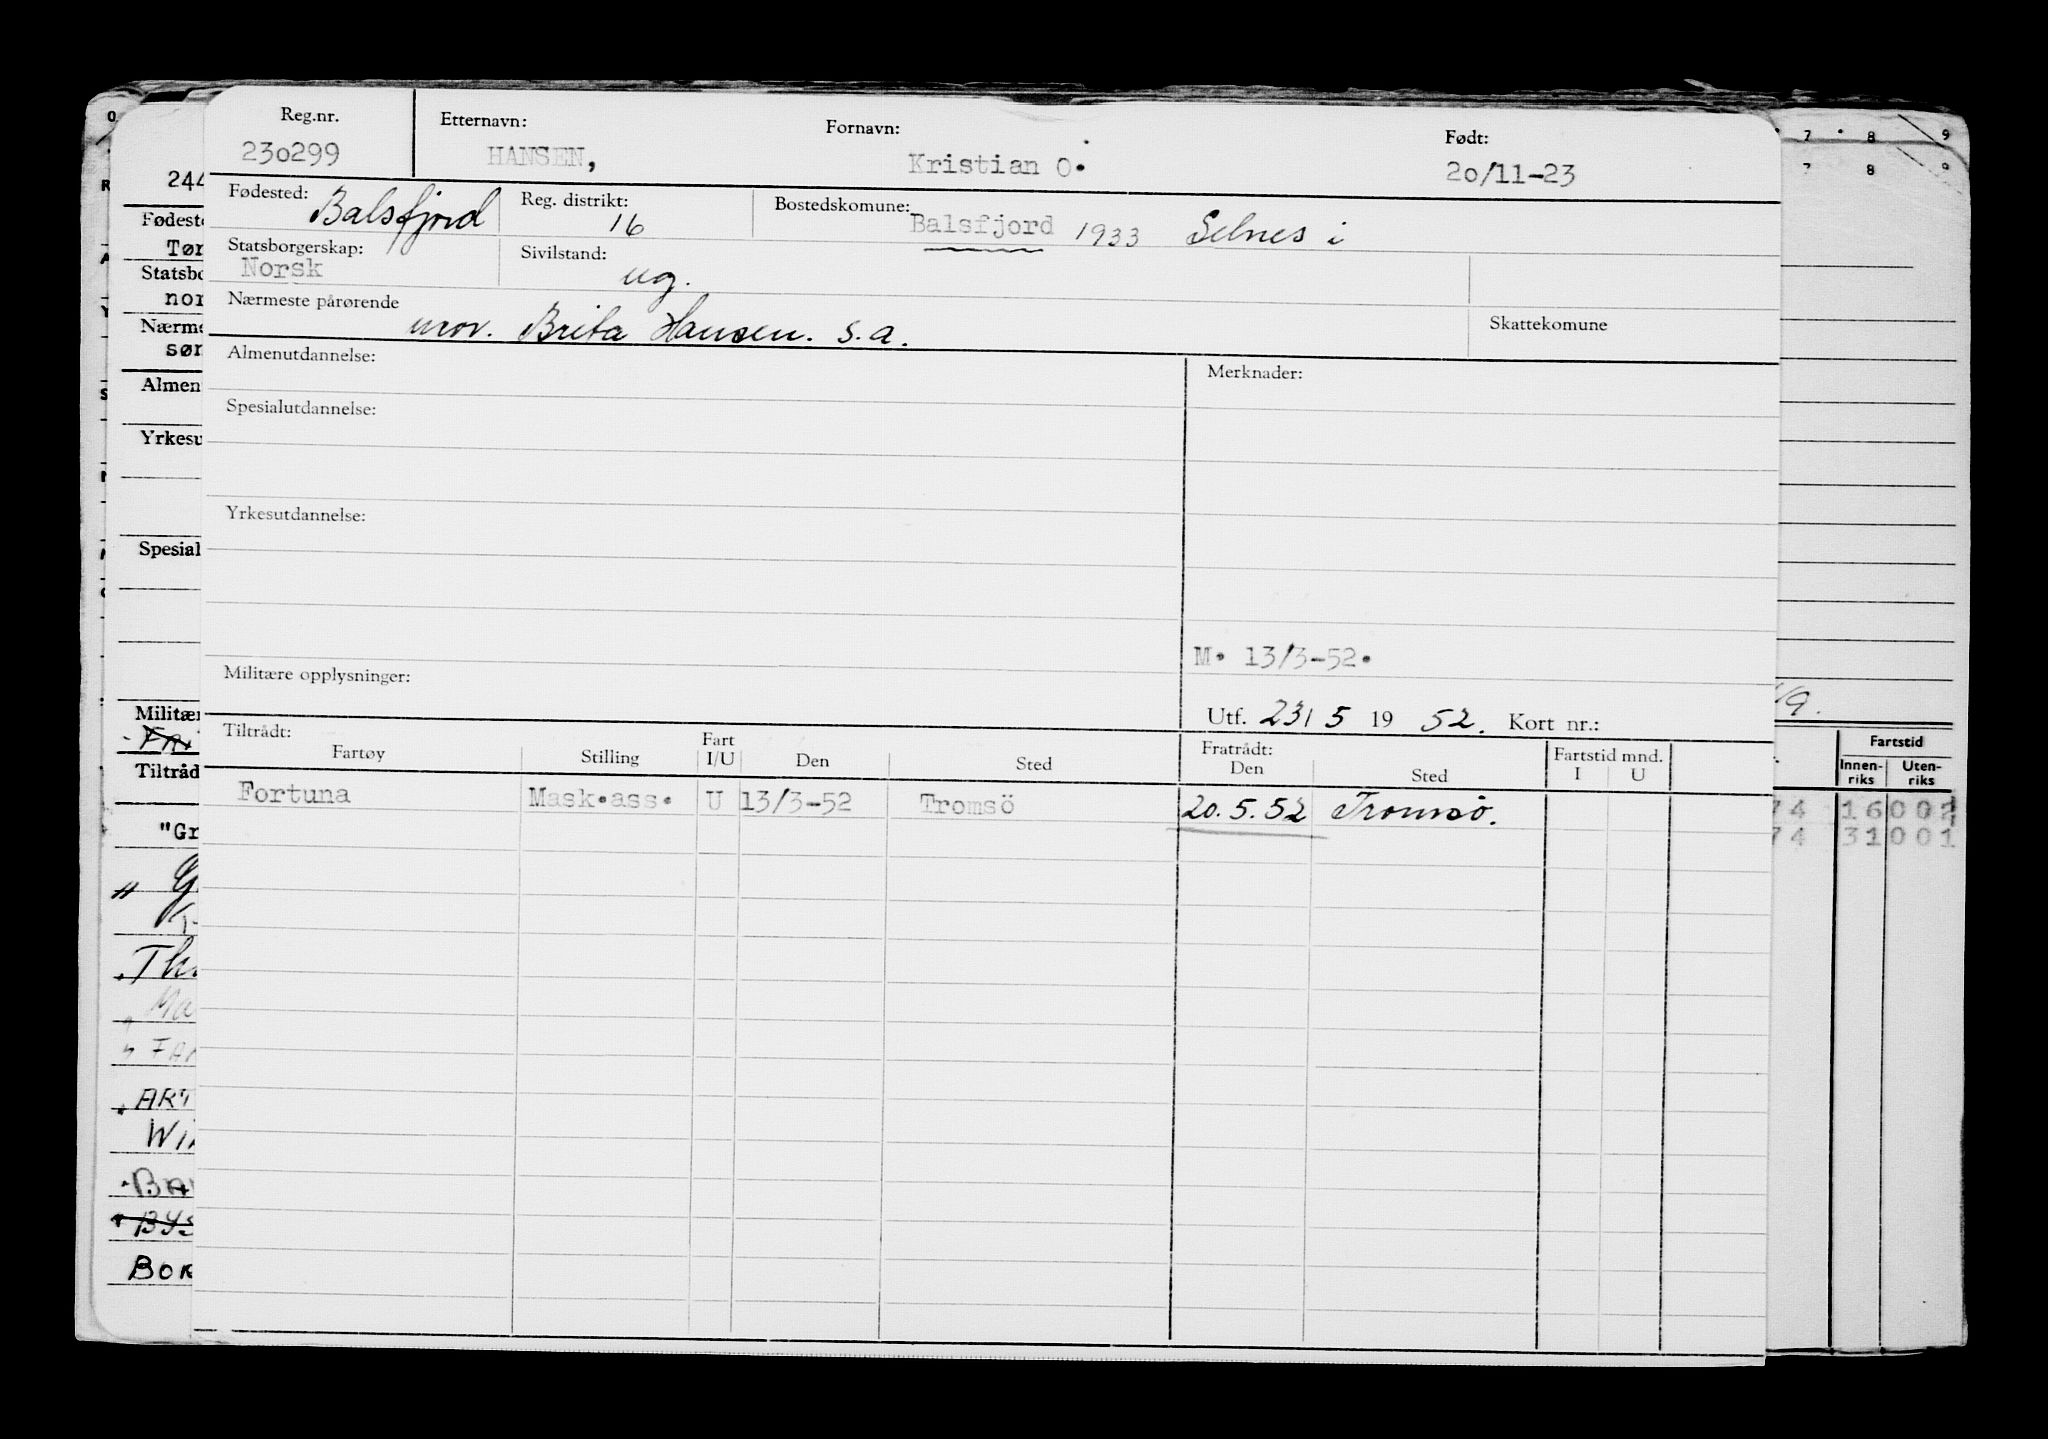 Reg.nr. Etternavn: Fornavn: Født:
230299 HANSEN, Kristian O. 20/11-23
Fødested: Balsfjord Reg. distrikt: 16 Bostedskommune: Balsfjord 1933 Selnes i
Statsborgerskap: Norsk Sivilstand: ug.
Nærmeste pårørende mor. Brita Hansen. s.a. Skattekomune
Almenutdannelse: Merknader:
Spesialutdannelse:
Yrkesutdannelse:
M. 13/3-52.
Militære opplysninger:
Utf. 23/5 19 52. Kort nr.:
Tiltrådt: Fratrådt: Fartstid mnd.
Fartøy Stilling Fart I/U Den Sted Den Sted I U
Fortuna Mask.ass. U 13/3-52 Tromsö 20.5.52 Tromsö.
7 8 9
7 8 9
244
Fødeste
Tør
Statsbo
nor
Nærme
sør
Almen
Yrkesu
Spesial
Militær
Tiltråd
"Gr
ART
BOR
Fartstid
Innen-riks Uten-riks
74 16 002
74 31 001